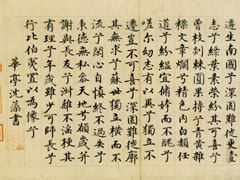 遷生南國兮深固難徙更壹
志兮綠葉素榮紛其可喜兮
曾枝剡棘圓果摶兮青黃雜
糅文章爛兮精色內白類任
道兮紛縕宜脩姱而不醜兮
嗟尔幼志有以異兮獨立不
遷豈不可喜兮深固難徙廓
其無求兮蘇世獨立橫而不
流兮閉心自慎終不過失兮
秉德無私參天地兮願歲并
謝與長友兮淑離不淫梗其
有理兮年歲雖少可師長兮
行比伯夷置以為像兮
華亭沈藻書